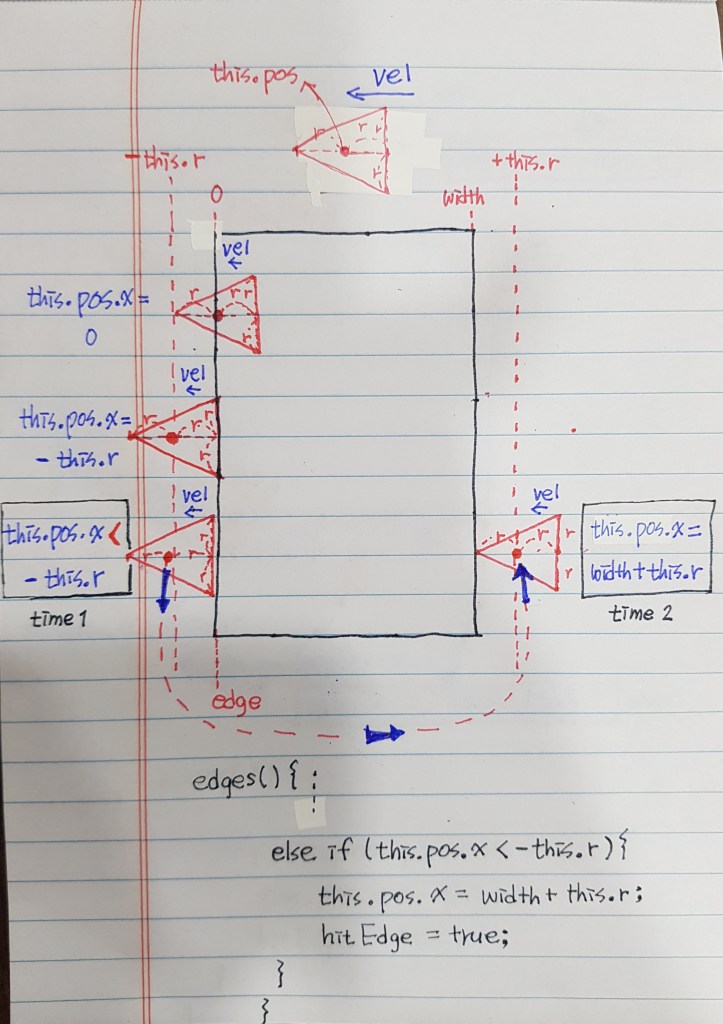 this.pos
vel
r
r
r
r
-this.r
+this.r
0
width
vel
this.pos.x=
0
r
r
r
r
vel
this.pos.x=
- this.r
r
r
r
r
vel
this.pos.x <
- this.r
time 1
r
r
r
r
vel
r
r
r
r
this.pos.x=
width+this.r
time 2
edge
edges(){ :
else if (this.pos.x < -this.r){
this.pos.x = width + this.r;
hitEdge = true;
}
}